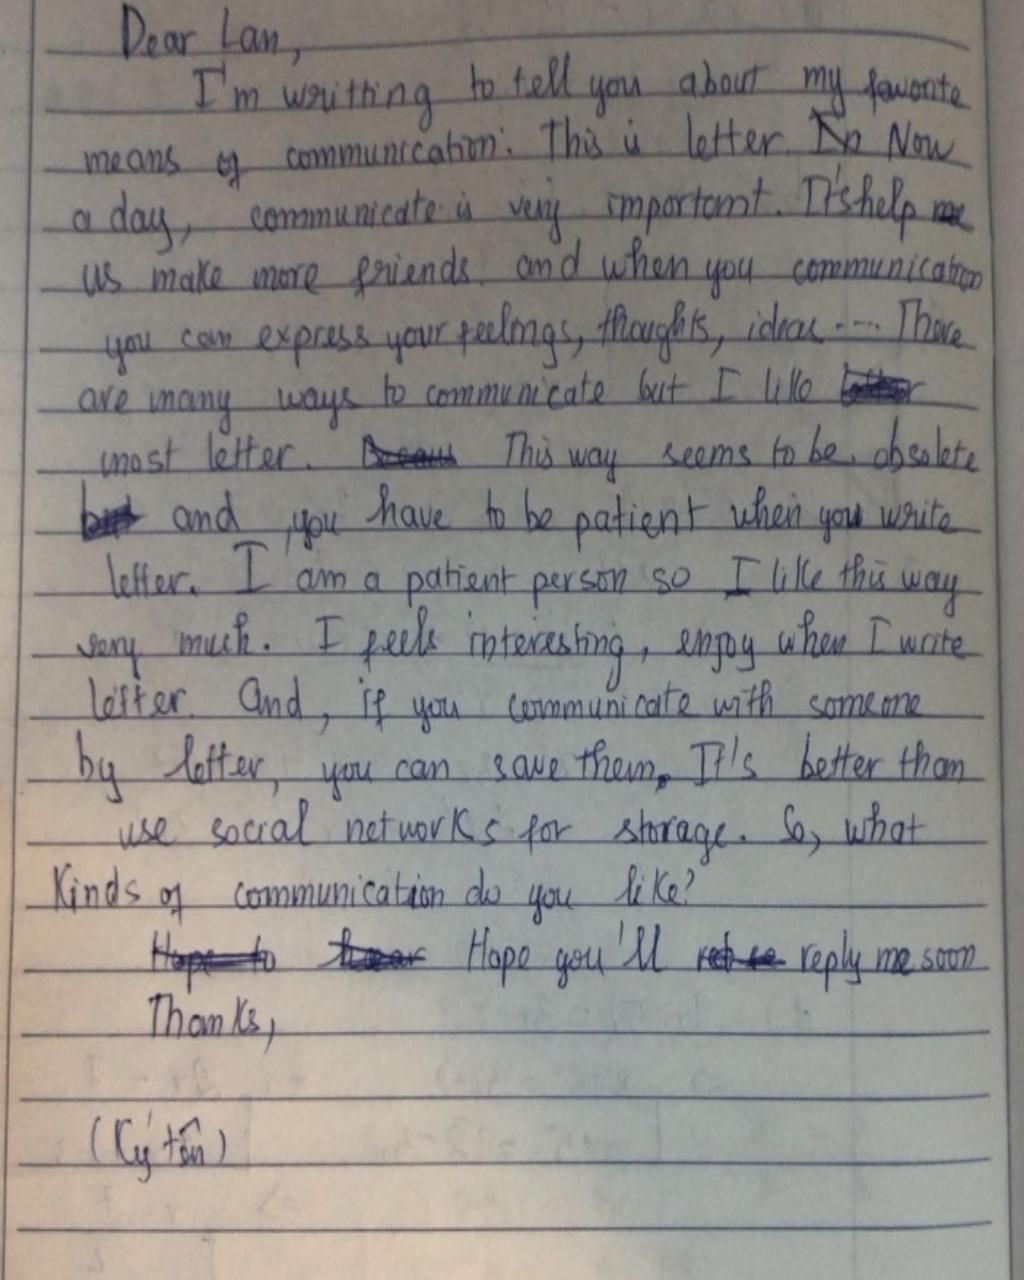 Dear Lan,
I'm writting to tell you about my favorite
means of communication. This is letter. In Now
a day, communicate is very important. It's help me
us make more friends. and when you communication
you can express your feelings, thoughts, ideas .... There
are many ways to communicate but I like letter
most letter. Becaus This way seems to be obsolete
but and you have to be patient when you write
letter. I am a patient person so I like this way
very much. I feels interesting, enjoy when I write
letter. And, if you communicate with someone
by letter, you can save them. It's better than
use social networks for storage. So, what
Kinds of communication do you like?
Hope to hear Hope you'll reply me soon
Thanks,
(Ký tên)